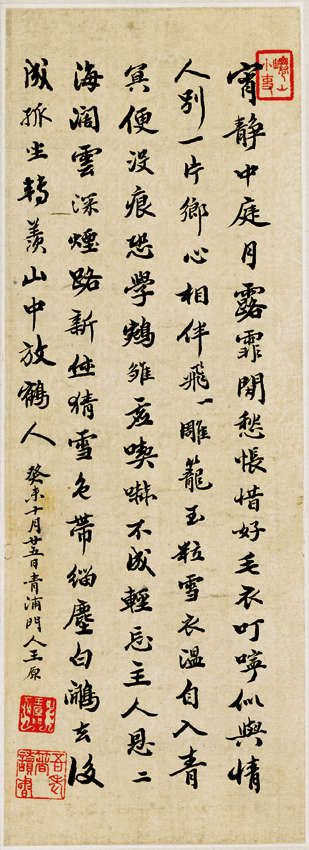 宵靜中庭月露霏閒愁悵惜好毛衣叮嚀似與情
人別一片鄉心相伴飛一雕籠玉粒雪衣溫自入青
冥便沒痕恐學鵷雛虛喫嚇不成輕忘主人恩二
海闊雲深煙路新猜雪色帶緇塵白鷴去後
成孤坐轉羨山中放鶴人癸未十月廿五日青浦門人王原